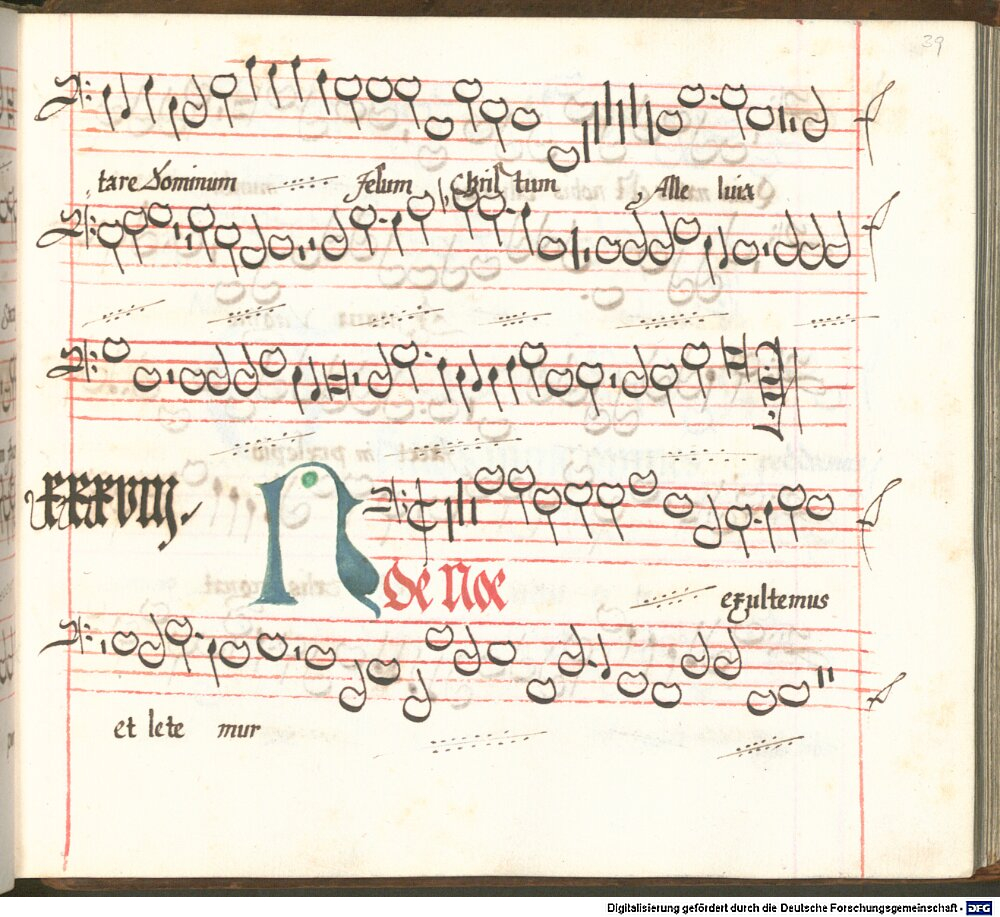 39
tare Dominum Jesum Chris tum Alle luia
xxxviii.
N
De Noe exultemus
et lete mur
Digitalisierung gefördert durch die Deutsche Forschungsgemeinschaft - DFG